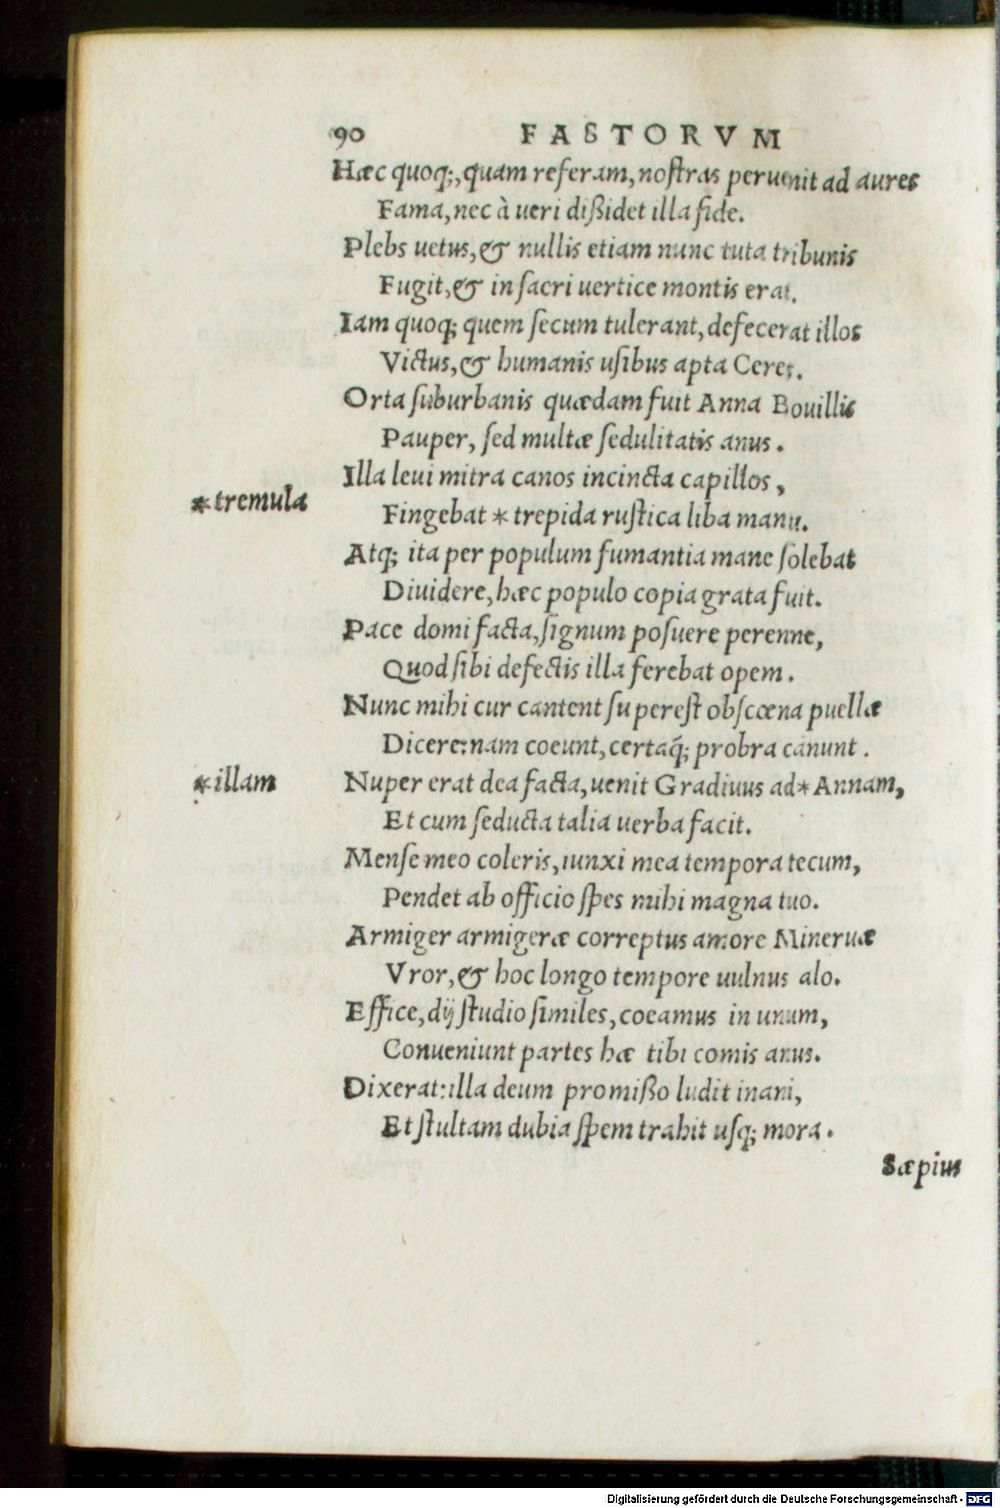 90 FASTORVM
Hæc quoq;, quam referam, nostras peruenit ad aures
Fama, nec à ueri dißidet illa fide.
Plebs uetus, & nullis etiam nunc tuta tribunis
Fugit, & in sacri uertice montis erat.
Iam quoq; quem secum tulerant, defecerat illos
Victus, & humanis usibus apta Ceres.
Orta suburbanis quædam fuit Anna Bouillis
Pauper, sed multæ sedulitatis anus.
Illa leui mitra canos incincta capillos,
*tremula
Fingebat * trepida rustica liba manu.
Atq; ita per populum fumantia mane solebat
Diuidere, hæc populo copia grata fuit.
Pace domi facta, signum posuere perenne,
Quod sibi defectis illa ferebat opem.
Nunc mihi cur cantent superest obscœna puellæ
Dicere: nam coeunt, certaq́; probra canunt.
*illam
Nuper erat dea facta, uenit Gradiuus ad * Annam,
Et cum seducta talia uerba facit.
Mense meo coleris, iunxi mea tempora tecum,
Pendet ab officio spes mihi magna tuo.
Armiger armigeræ correptus amore Mineruæ
Vror, & hoc longo tempore uulnus alo.
Effice, dij studio similes, coeamus in unum,
Conueniunt partes hæ tibi comis anus.
Dixerat: illa deum promißo ludit inani,
Et stultam dubia spem trahit usq; mora.
Sæpius
Digitalisierung gefördert durch die Deutsche Forschungsgemeinschaft - DFG